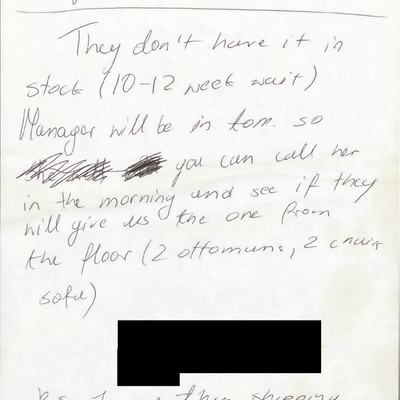 They don't have it in
stock (10-12 week wait)
Manager will be in tom. so
you can call her
in the morning and see if they
will give us the one from
the floor (2 ottomans, 2 chairs
sofa)
shipping